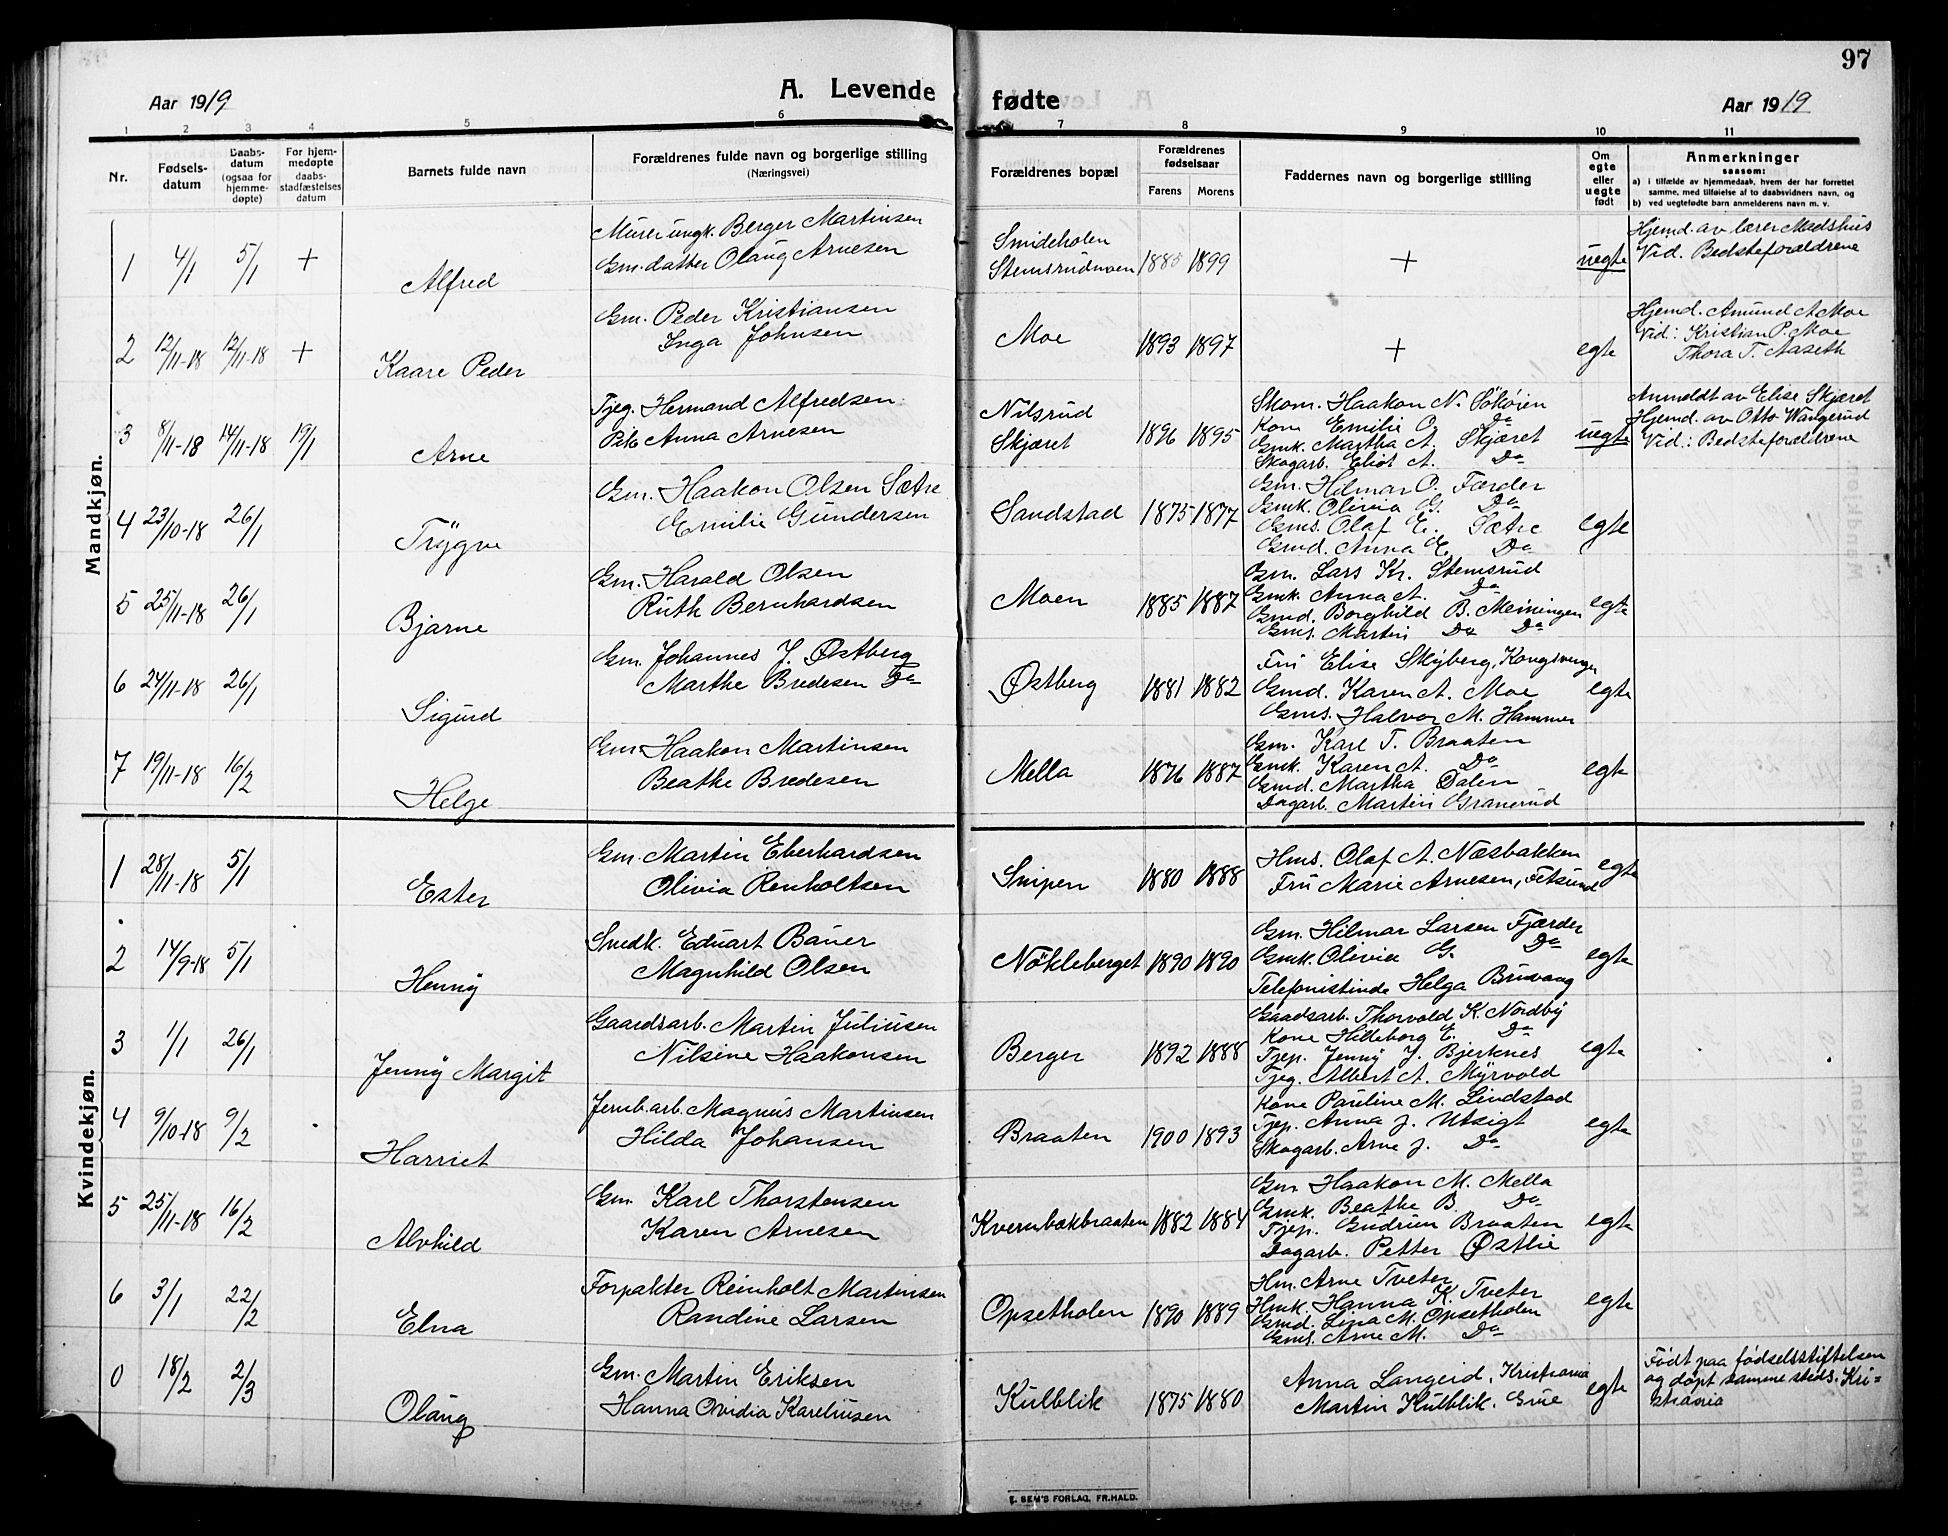 97
Aar 1919 A. Levende fødte Aar 1919
1 2 3 4 5 6 7 8 9 10 11
Nr. Fødsels-datum Daabs-datum (ogsaa for hjemme-døpte) For hjem-medøpte daabs-stadfæstelses datum Barnets fulde navn Forældrenes fulde navn og borgerlige stilling (Næringsvei) Forældrenes bopæl Forældrenes fødselsaar Farens Morens Faddernes navn og borgerlige stilling Om egte eller uegte født Anmerkninger saasom: a) i tilfælde av hjemmedaab, hvem der har forrettet samme, med tilføielse af to daabsvidners navn, og b) ved uegtefødte barn anmelderens navn m. v.
Mandkjøn.
1 4/1 5/1 + Alfred
Murer ungk. Berger Martinsen
Gm. datter Olaug Arnesen
Smideholen
Stemsrudmoen
1885 1899 + uegte
Hjemd. av lærer Madshus
Vid. Bedsteforældrene
2 12/11-18 12/11-18 + Kaare Peder
Gm. Peder Kristiansen
Inga Johnsen
Moe 1893 1897 + egte
Hjemd. Amund A. Moe
Vid: Kristian P. Moe
Thora T. Aaseth
3 8/11-18 14/11-18 19/1 Arne
Tjeg. Hermand Alfredsen
Pike Anna Arnesen
Nilsrud
Skjæret
1896 1895
Skom. Haakon N. Sökøien
Kone Emilie O. Do
Gmk. Martha A. Skjæret
Skogarb. Eliot A. Do
uegte
Anmeldt av Elise Skjæret
Hjemd. av Otto Wangerud
Vid.: Bedsteforældrene
4 23/10-18 26/1 Trygve
Gm. Haakon Olsen Sætre
Emilie Gundersen
Sandstad 1875 1877
Gm. Hilmar O. Færder
Gmk. Olivia G. Do
Gms. Olaf E. Sætre
Gmd. Anna E. Do
egte
5 25/11-18 26/1 Bjarne
Gm. Harald Olsen
Ruth Bernhardsen
Moen 1885 1887
Gm. Lars Kr. Stemsrud
Gmk. Anna A. Do
Gmd. Borghild B. Meiningen
Gms. Martin Do Do
egte
6 24/11-18 26/1 Sigurd
Gm. Johannes J. Østberg
Marthe Bredesen Do
Østberg 1881 1882
Fru Elise Skyberg, Kongsvinger
Gmd. Karen A. Moe
Gms. Halvor M. Hammer
egte
7 19/11-18 16/2 Helge
Gm. Haakon Martinsen
Beathe Bredesen
Mella 1876 1887
Gm. Karl T. Braaten
Gmk. Karen A. Do
Gmd. Martha Dalen
Dagarb. Martin Granerud
egte
Kvindekjøn.
1 28/11-18 5/1 Ester
Gm. Martin Eberhardsen
Olivia Renholtsen
Snipen 1880 1888
Hms. Olaf A. Næsbakken
Fru Marie Arnesen, Fetsund
egte
2 14/9-18 5/1 Henny
Snedk. Eduart Bauer
Magnhild Olsen
Nökleberget 1890 1890
Gm. Hilmar Larsen Fjærder
Gmk. Olivia G. Do
Telefonistinde Helga Bruvang
egte
3 1/1 26/1 Jenny Margit
Gaardsarb. Martin Juliusen
Nilsine Haakonsen
Berger 1892 1888
Gaadsarb. Thorvald K. Nordby
Kone Hilleborg E. Do
Tjep. Jenny J. Bjerknes
Tjeg. Albert A. Myrvold
egte
4 9/10-18 9/2 Harriet
Jernb.arb. Magnus Martinsen
Hilda Johansen
Braaten 1900 1893
Kone Pauline M. Lindstad
Tjep. Anna J. Utsigt
Skogarb. Arne J. Do
egte
5 25/11-18 16/2 Alvhild
Gm Karl Thorstensen
Karen Arnesen
Kvernbækbraaten 1882 1884
Gm Haakon M. Mella
Gmk. Beathe B. Do
Tjep. Gudrun Braaten
Dagarb. Petter Østlie
egte
6 3/1 22/2 Elna
Forpakter Reinholt Martinsen
Randine Larsen
Opsetholen 1890 1889
Hm. Arne Tveter
Hmk. Hanna K. Tveter
Gmd. Lina M. Opsetholen
Gms. Arne M. Do
egte
0 18/2 2/3 Olaug
Gm. Martin Eriksen
Hanna Ovidia Kareliusen
Kulblik 1875 1880
Anna Langeid, Kristiania
Martin Kulblik. Grue
egte
Født paa fødselsstiftelsen
og døpt samme steds. Kri-
stiania
E. SEM'S FORLAG, FR.HALD.